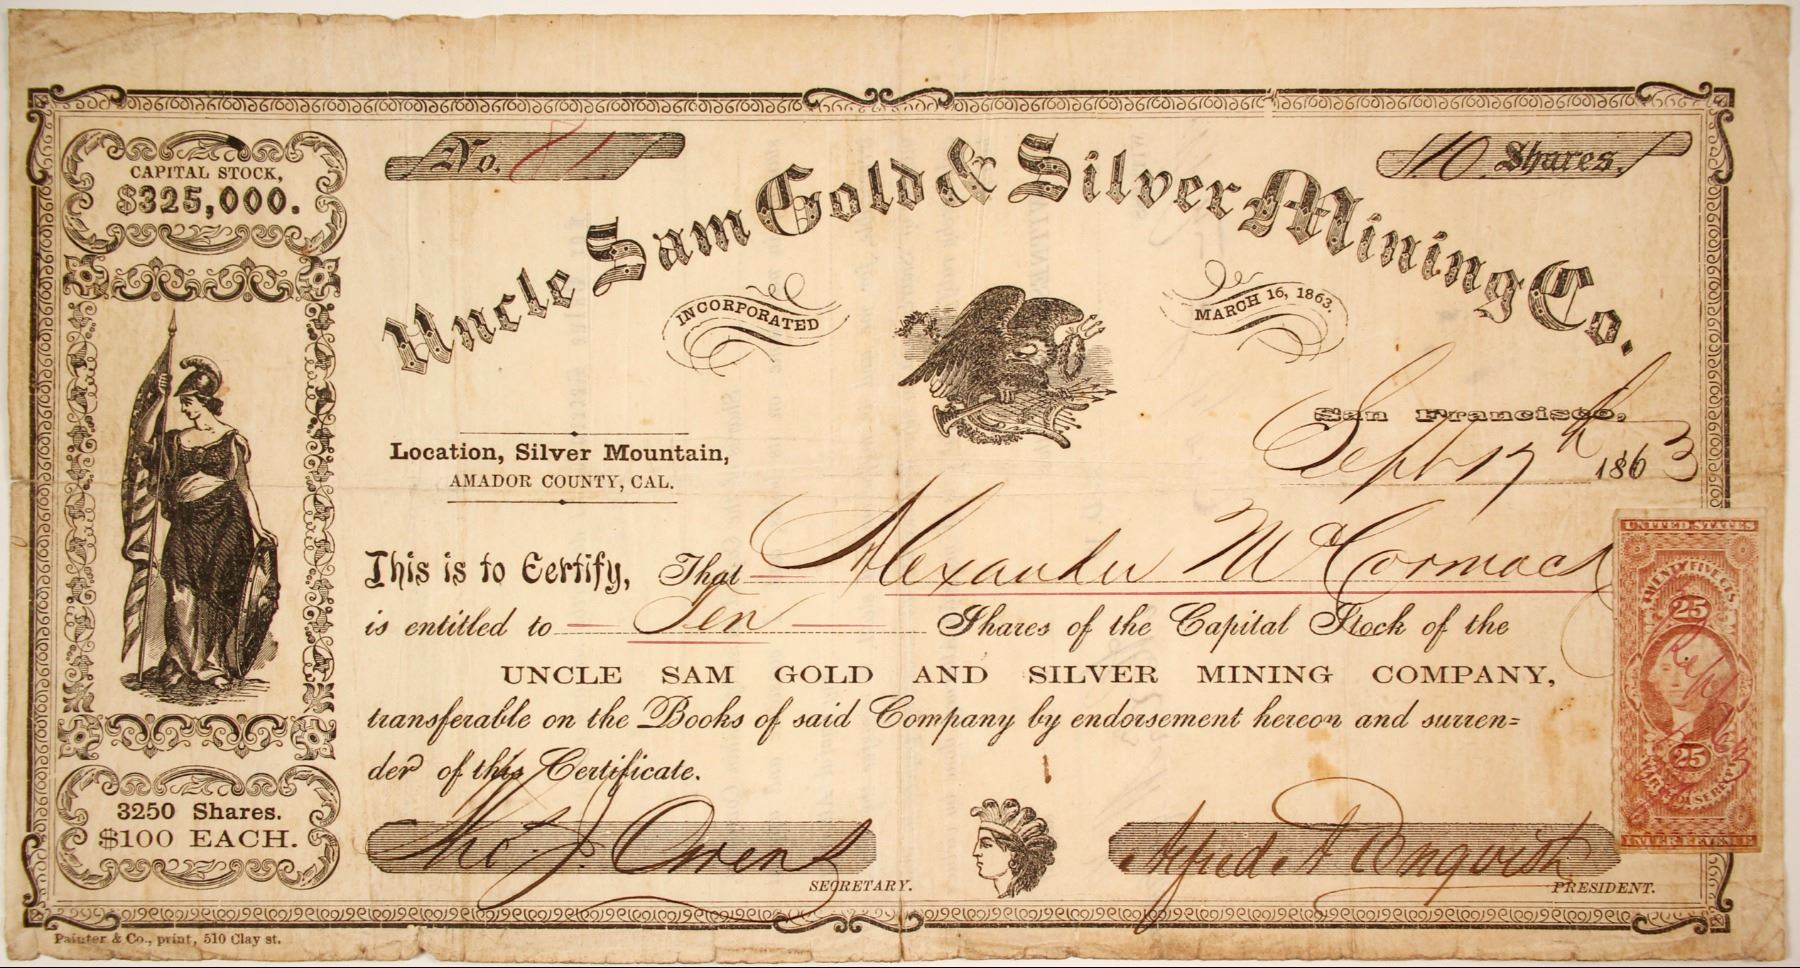 CAPITAL STOCK,
$325,000.
No. 81
10 Shares.
Uncle Sam Gold & Silver Mining Co.
INCORPORATED
MARCH 16, 1863.
San Francisco,
Sept 17th 1863
Location, Silver Mountain,
AMADOR COUNTY, CAL.
This is to Certify, That Alexander McCormack
is entitled to Ten Shares of the Capital Stock of the
UNCLE SAM GOLD AND SILVER MINING COMPANY,
transferable on the Books of said Company by endorsement hereon and surren=
der of this Certificate.
3250 Shares.
$100 EACH.
Tho. J. Owens
SECRETARY.
Alfred A
PRESIDENT.
UNITED STATES
TWENTY FIVE CTS.
25
25
INTER REVENUE
Painter & Co., print, 510 Clay st.